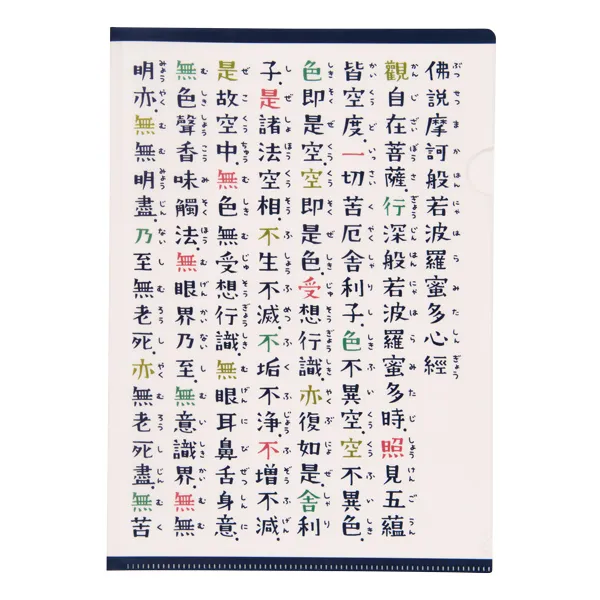 佛説摩訶般若波羅蜜多心經
觀自在菩薩.行深般若波羅蜜多時.照見五蘊
皆空度.一切苦厄舍利子.色不異空.空不異色.
色即是空.空即是色.受想行識.亦復如是.舍利
子.是諸法空相.不生不滅.不垢不浄.不増不減
是故空中.無色無受想行識.無眼耳鼻舌身意.
無色聲香味觸法.無眼界乃至.無意識界.無無
明亦.無無明盡.乃至無老死.亦無老死盡.無苦